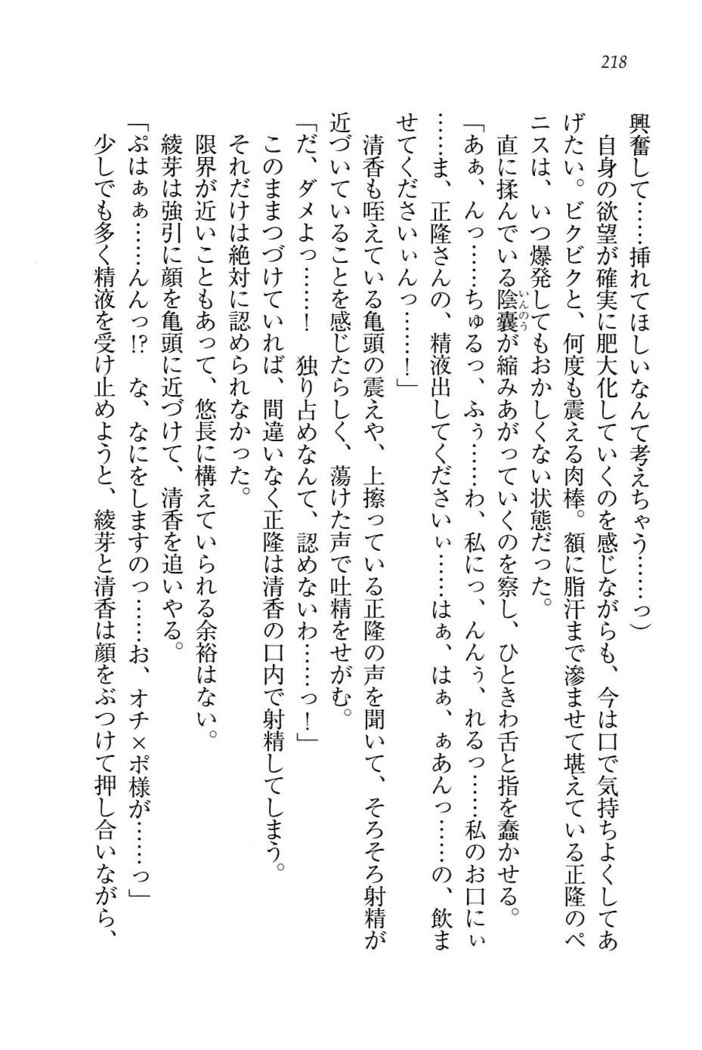 218
興奮して……挿れてほしいなんて考えちゃう……っ）
自身の欲望が確実に肥大化していくのを感じながらも、今は口で気持ちよくしてあ
げたい。ビクビクと、何度も震える肉棒。額に脂汗まで滲ませて堪えている正隆のペ
ニスは、いつ爆発してもおかしくない状態だった。
直に揉んでいる陰嚢いんのうが縮みあがっていくのを察し、ひときわ舌と指を蠢かせる。
「あぁ、んっ……ちゅるっ、ふぅ……わ、私にっ、んんぅ、れるっ……私のお口にぃ
……ま、正隆さんの、精液出してくださいぃ……はぁ、はぁ、ぁあんっ……の、飲ま
せてくださいぃんっ……！」
清香も咥えている亀頭の震えや、上擦っている正隆の声を聞いて、そろそろ射精が
近づいていることを感じたらしく、蕩けた声で吐精をせがむ。
「だ、ダメよっ……！　独り占めなんて、認めないわ……っ！」
このままつづけていれば、間違いなく正隆は清香の口内で射精してしまう。
それだけは絶対に認められなかった。
限界が近いこともあって、悠長に構えていられる余裕はない。
綾芽は強引に顔を亀頭に近づけて、清香を追いやる。
「ぷはぁぁ……んんっ!?　な、なにをしますのっ……お、オチ×ポ様が……っ」
少しでも多く精液を受け止めようと、綾芽と清香は顔をぶつけて押し合いながら、